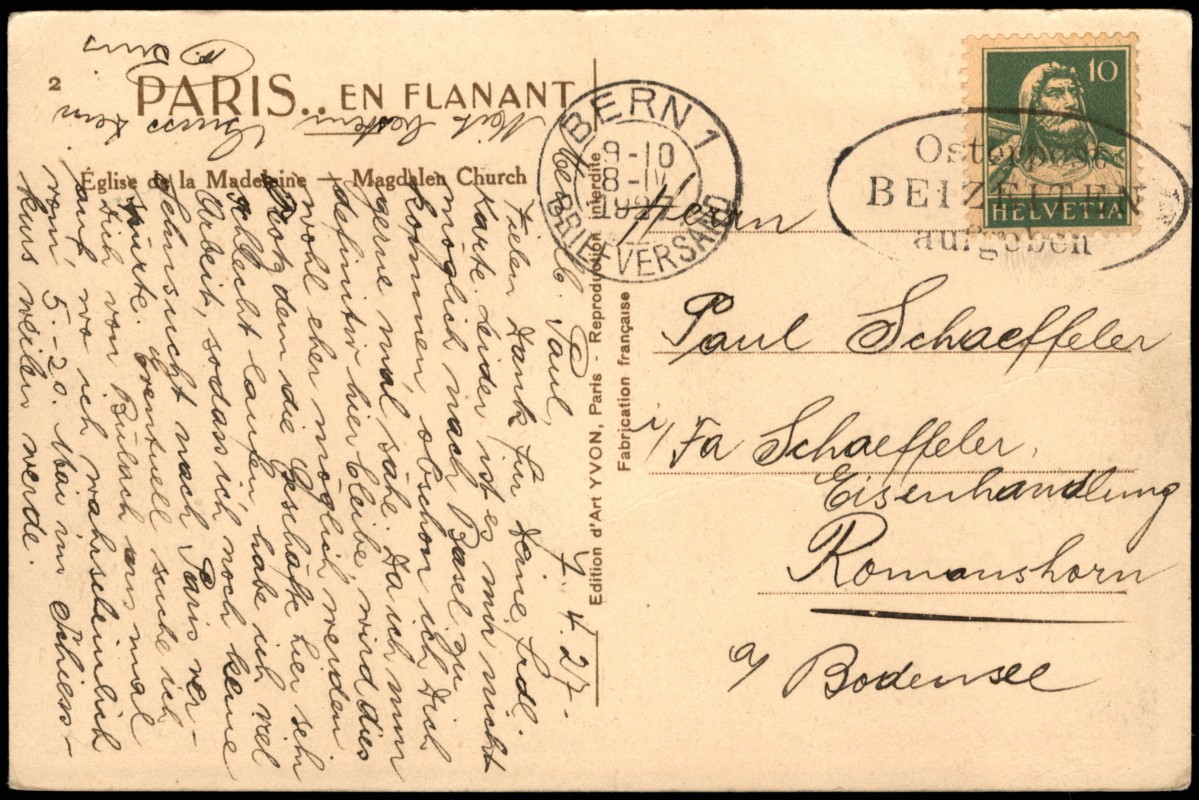 2
PARIS.. EN FLANANT
Église de la Madeleine — Magdalen Church
7. 4. 27.
Mein lb. Paul,
Vielen Dank für Deine frdl.
Karte. Leider ist es mir nicht
möglich nach Basel zu
kommen, obschon ich Dich
gerne mal sähe. Da ich nun
definitiv hier bleibe, wird dies
wohl eher möglich werden.
Trotzdem die Geschäfte hier sehr
schlecht laufen, habe ich viel
Arbeit, sodass ich noch keine
Sehnsucht nach Paris ver-
spürte. Eventuell suche ich
Dich von Bülach aus mal
auf, wo ich wahrscheinlich
vom 5.-20. Mai im Schiess-
kurs weilen werde.
Mit besten
Gruss Dein
Edition d'Art YVON, Paris - Reproduction interdite
Fabrication française
BERN 1
9-10
8-IV
1927
BRIEFVERSAND
Osterpost
BEIZEITEN
aufgeben
10
HELVETIA
Herrn
Paul Schaeffeler
i/Fa Schaeffeler,
Eisenhandlung
Romanshorn
a/ Bodensee